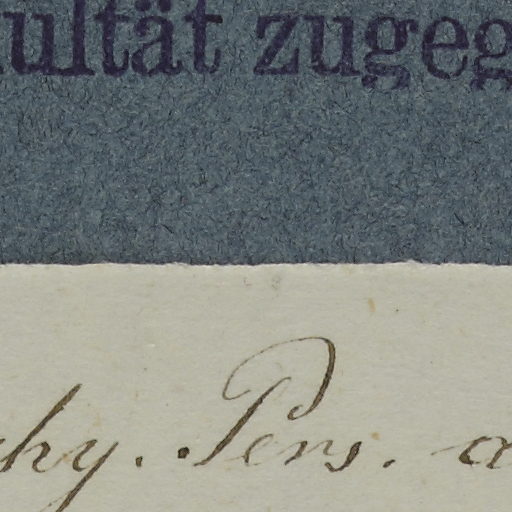 kultät zugeg
hy. Pers. a